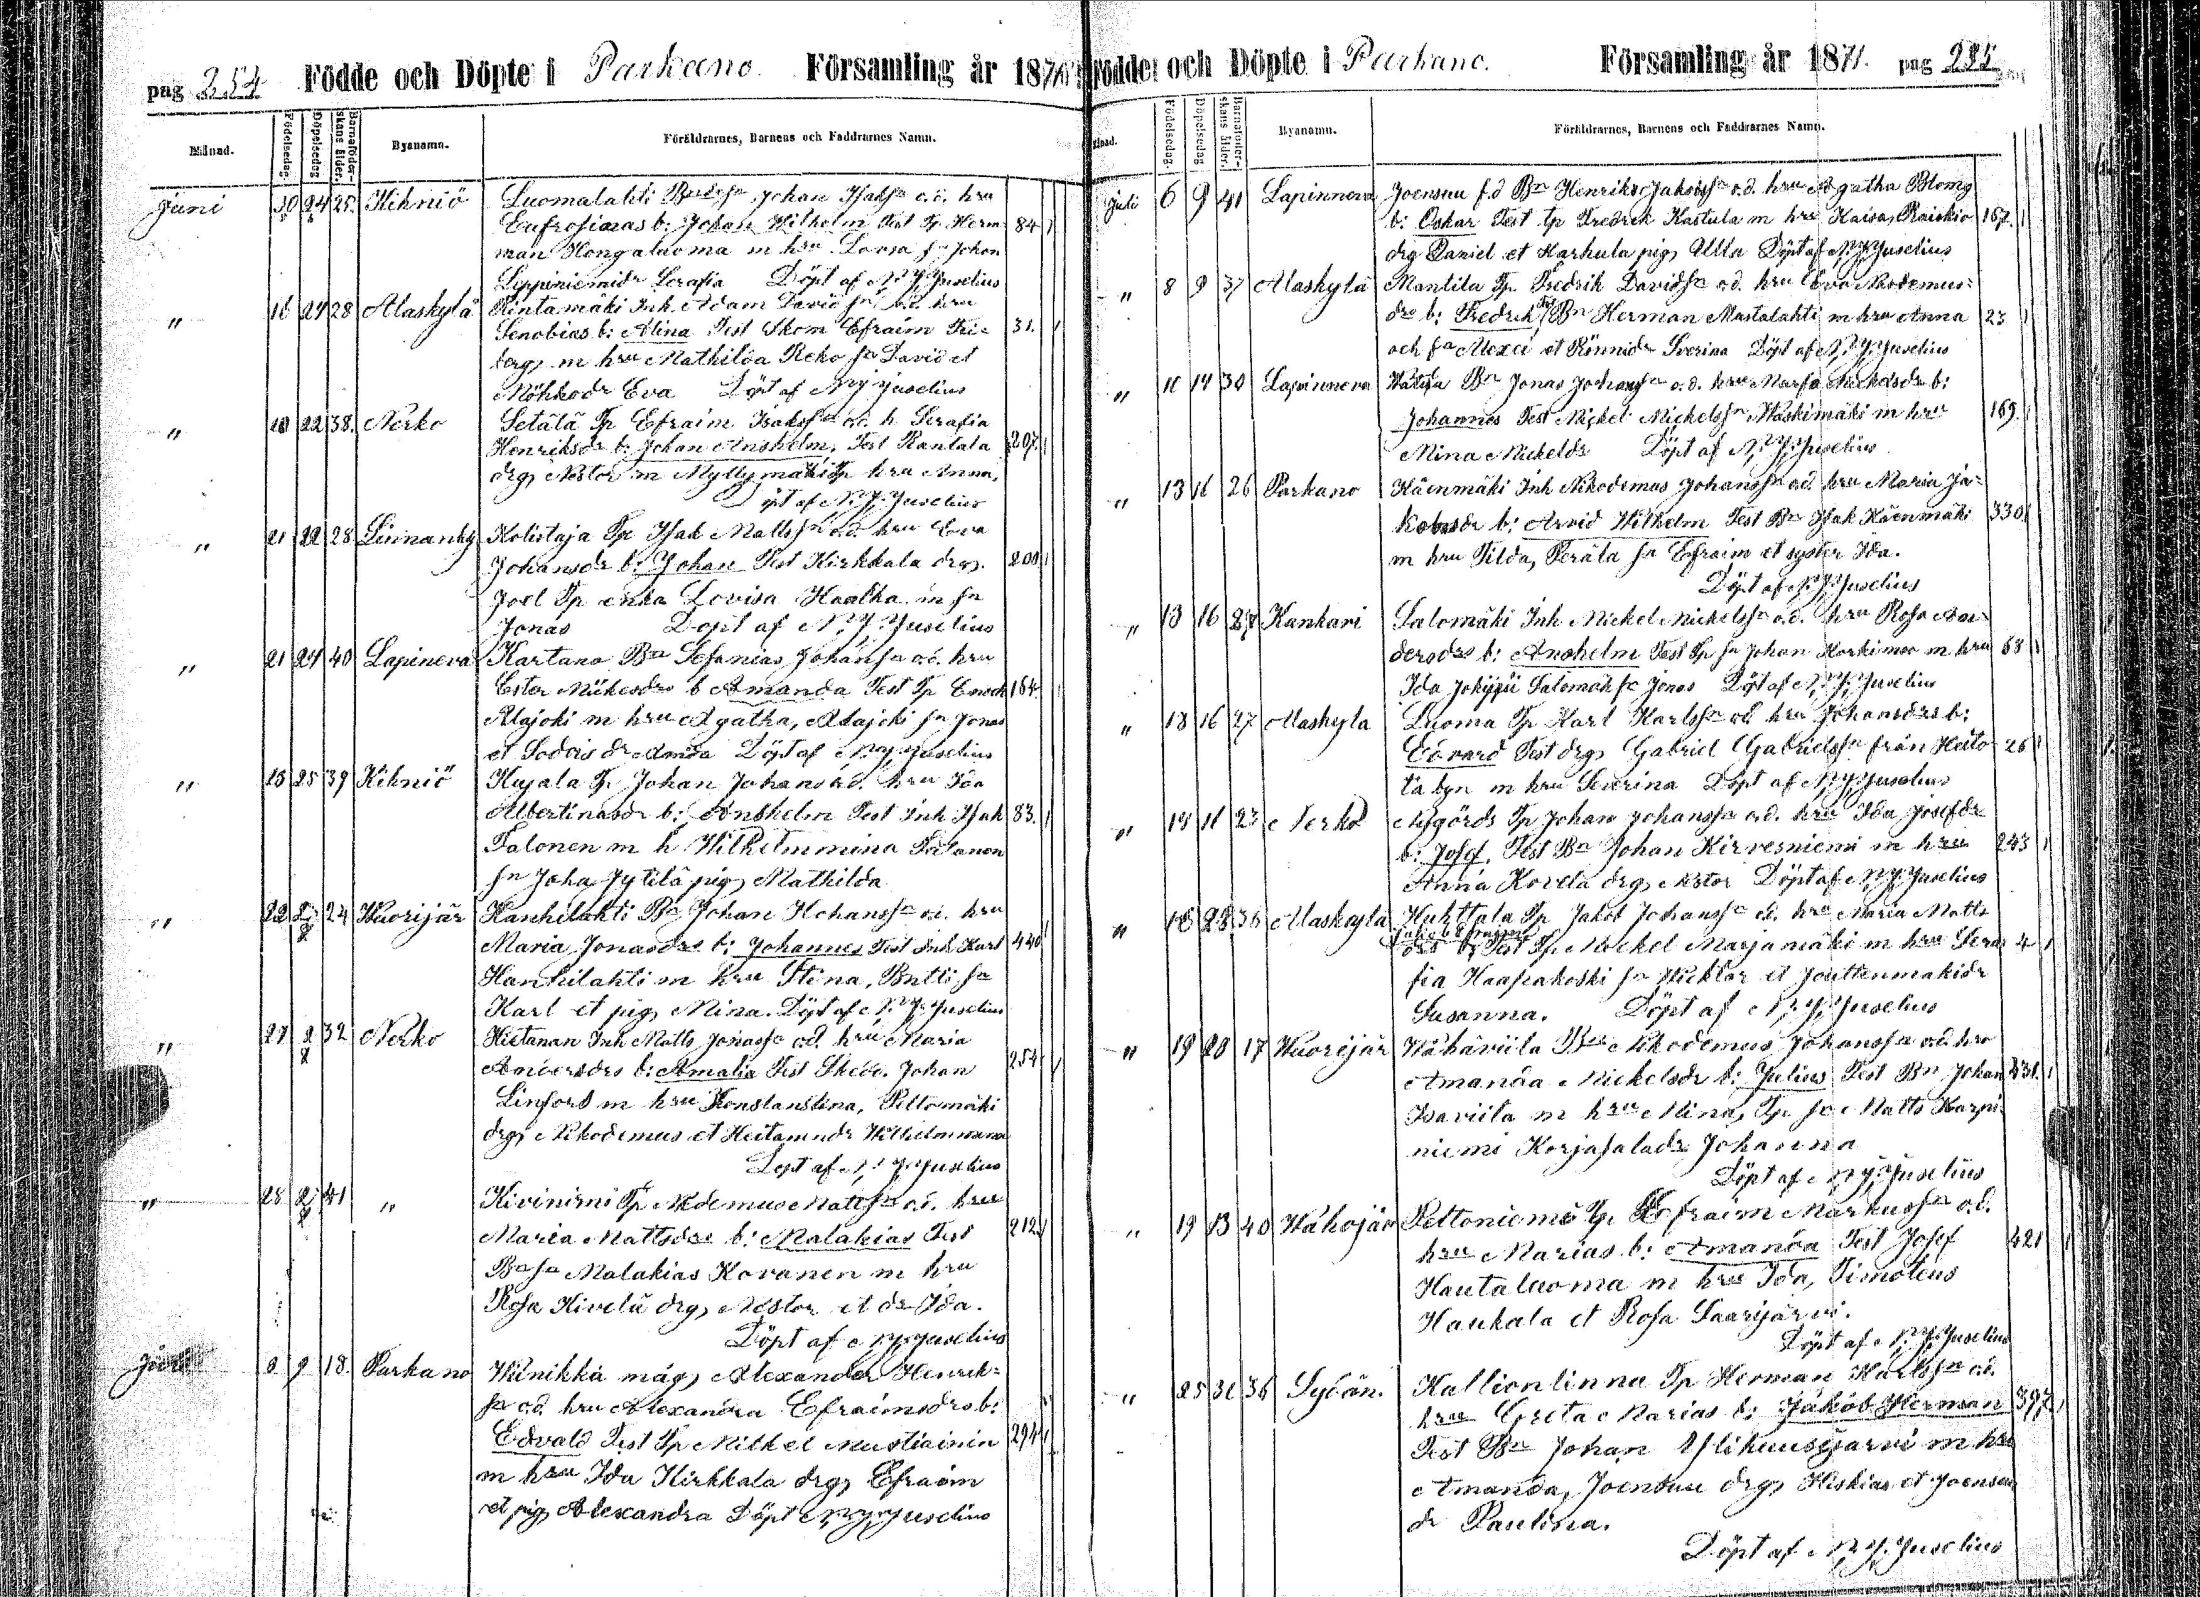 pag 254 Födde och Döpte i Parkano Församling år 1871
Månad. Födelsedag. Döpelsedag Barnaföder-skans ålder. Byanamn. Föräldrarnes, Barnens och Faddrarnes Namn.
Juni 20 24 25. Kihniö Luomalahti Johan Isakss o.d. hru
Eufrosinas b: Johan Wilhelm Test Tp Herm 84
man Hongaluoma m hru Lovisa sn Johan
Leppiniemidr Serafia Döpt af N. J. Juselius
" 16 24 28 Alaskylä Rintamäki Inh Adam Davidsn o.d. hru
Senobias b: Alina Test Skom Efraim Fri- 31.
berg, m hru Mathilda Reko sn David et
Möhkodr Eva Döpt af N J Juselius
" 18 22 38. Nerko Setälä Tp Efraim Isakssn o.d. h Serafia
Henriksdr b: Johan Anshelm. Test Rantala 207.
drg, Nestor m Myllymäki Tp hru Anna.
Döpt af N. J. Juselius
" 21 22 28 Linnanky Kolistaja Tp Isak Mattssn o.d. hru Eva
Johansdr b: Johan Test Kirkkala drg. 200
Joel Tp enka Lovisa m sn
Jonas Döpt af N. J. Juselius
" 21 24 40 Lapineva Kartano Bn Sefanias Johanssn o.d. hru
Ester b Amanda Test Tp Enock 164
Alajoki m hru Agatha, Alajoki sn Jonas
et dr Amda Döpt af N J Juselius
" 18 25 39 Kihniö Kujala Tp Johan Johans o.d. hru Ida
Albertinasdr b: Anshelm Test Inh Isak 83.
Talonen m h Wilhelmmina
sn Joha Jytilä pig, Mathilda
" 22 24 Wuorijär Hanhilahti Bn Johan Johanssn o.d. hru
Maria Jonasdr b: Johannes Test Inh Karl 440
Hanhilahti m hru Stina, sn
Karl et pig, Mina. Döpt af N. J. Juselius
" 27 2 32 Nerko Hietanan Inh Matts Jonassn o.d. hru Maria
Andersdrs b: Amalia Test Johan 254
Linfors m hru Konstanstina, Peltomäki
drg, Nikodemus et Wilhelmmina
Döpt af N. J. Juselius
" 28 2 41 " Tp Nikodemus Mattssn o.d. hru
Maria Mattsdr b: Malakias Test 212
Bn sn Malakias Kovanen m hru
Rosa Kivelä drg, Nestor et dr Ida.
Döpt af N. J. Juselius
Juli 8 9 18. Parkano Winikka måg, Alexander Henrik-
sn o.d. hru Alexandra Efraimsdrs b:
Edvald Test Tp Mikkel Mustiainin 294
m hru Ida Kirkkala drg, Efraim
et pig, Alexandra Döpt N. J. Juselius
Födde och Döpte i Parkano. Församling år 1871. pag 255
Födelsedag. Döpelsedag Barnaföder-skans ålder. Byanamn. Föräldrarnes, Barnens och Faddrarnes Namn.
Juli 6 9 41 Lapinneva Joensuu f.d Bn Henrik Jakobssn o.d. hru Agatha Blomg
b: Oskar Test Tp Fredrik Kastula m hru Kaisa, 167.
drg Daniel et Karhula pig, Ulla Döpt af N. J. Juselius
" 8 9 37 Alaskylä Mantila Tp Fredrik Davidssn o.d. hru Eva Nikodemus-
drs b: Fredrik, Test Bn Herman Mustalahti m hru Anna 23
och sn Alexei et dr Sverina Döpt af N. J. Juselius
" 10 14 30 Lapinneva Bn Jonas Johanssn o.d. hru Michelsdr b:
Johannes Test Mickel Mickelssn m hru 169.
Mina Mickelsdr Döpt af N. J. Juselius
" 13 16 26 Parkano Käenmäki Inh Nikodemus Johanssn o.d. hru Maria Ja-
kobsdr b: Arvid Wilhelm Test Bn Isak Käenmäki 330
m hru Tilda, Perälä sn Efraim et syster Ida.
Döpt af N. J. Juselius
" 13 16 27 Kankari Salomäki Inh Mickel Mickelssn o.d. hru Rosa An-
dersdrs b: Anshelm Test Tp sn Johan m hru 68
Ida Jokippii Salomäk sn Jonas Döpt af N. J. Juselius
" 13 16 27 Alaskyla Luoma Tp Karl Karlssn o.d. hru Johansdrs b:
Edvard Test drg, Gabriel Gabrielssn från Heito 26
la byn m hru Severina Döpt af N. J. Juselius
" 14 16 23 Nerko Nygårds Tp Johan Johanssn o.d. hru Ida Josefdr
b: Josef, Test Bn Johan Kirvesniemi m hru 243
Anna Korela drg, Nestor Döpt af N. J. Juselius
" 16 23 36 Alaskyla Huhttala Tp Jakob Johanssn o.d. hru Maria Matts
drs b: Test Tp Mickel Marjamäki m hru Sera 4
fia Haapakoski sn Wicktor et Jouttenmäkidr
Susanna. Döpt af N. J. Juselius
" 19 20 17 Wuorijär Wähäviita Bn Nikodemus Johanssn o.d. hru
Amanda Mickelsdr b: Julius Test Bn Johan 431.
Isaviita m hru Mina, Tp sn Matts Karpi-
niemi Korjasaladr Johanna
Döpt af N. J. Juselius
" 19 23 40 Wahojär Peltoniemi Tp Efraim Markussn o.d.
hru Marias b: Amanda Test Josef 421
Hautaluoma m hru Ida, Timoteus
Haukala et Rosa Saarijärvi.
Döpt af N. J. Juselius
" 25 31 36 Sydän. Kallionlinna Tp Herman Karlssn o.d.
hru Greta Marias b: Jakob Herman 397
Test Bn Johan Ylihuusijärvi m hru
Amanda, Joensuu drg, Hiskias et Joensuu
dr Paulina.
Döpt af N. J. Juselius